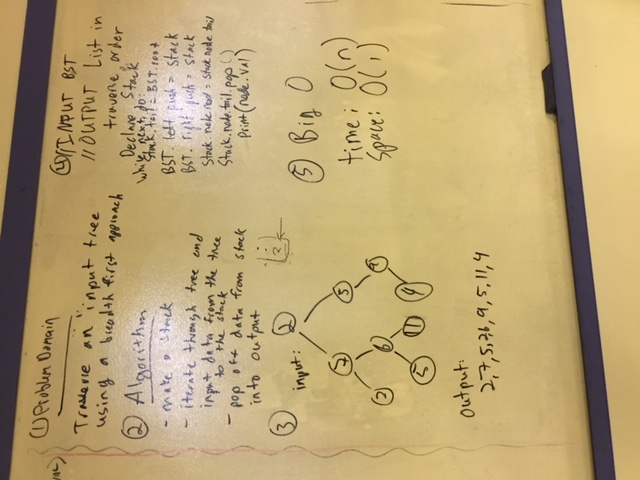 ① Problem Domain
Traverse an input tree
using a breadth first approach
② Algorithm
- make a stack
- iterate through tree and
input data from the tree
to the stack
- pop off data from stack
into output
③
input:
2
7 5
2 6 9
5 11 4
2
Output:
2,7,5,2,6,9,5,11,4
④ // INPUT BST
// OUTPUT List in
traverse order
Declare Stack
while next do:
Stack.tail = BST.root
BST.left.push = stack
BST.right.push = stack
Stack.node.next = stack node tail
Stack.node.tail.pop()
Print(node.val)
⑤ Big O
time: O(n)
Space: O(1)